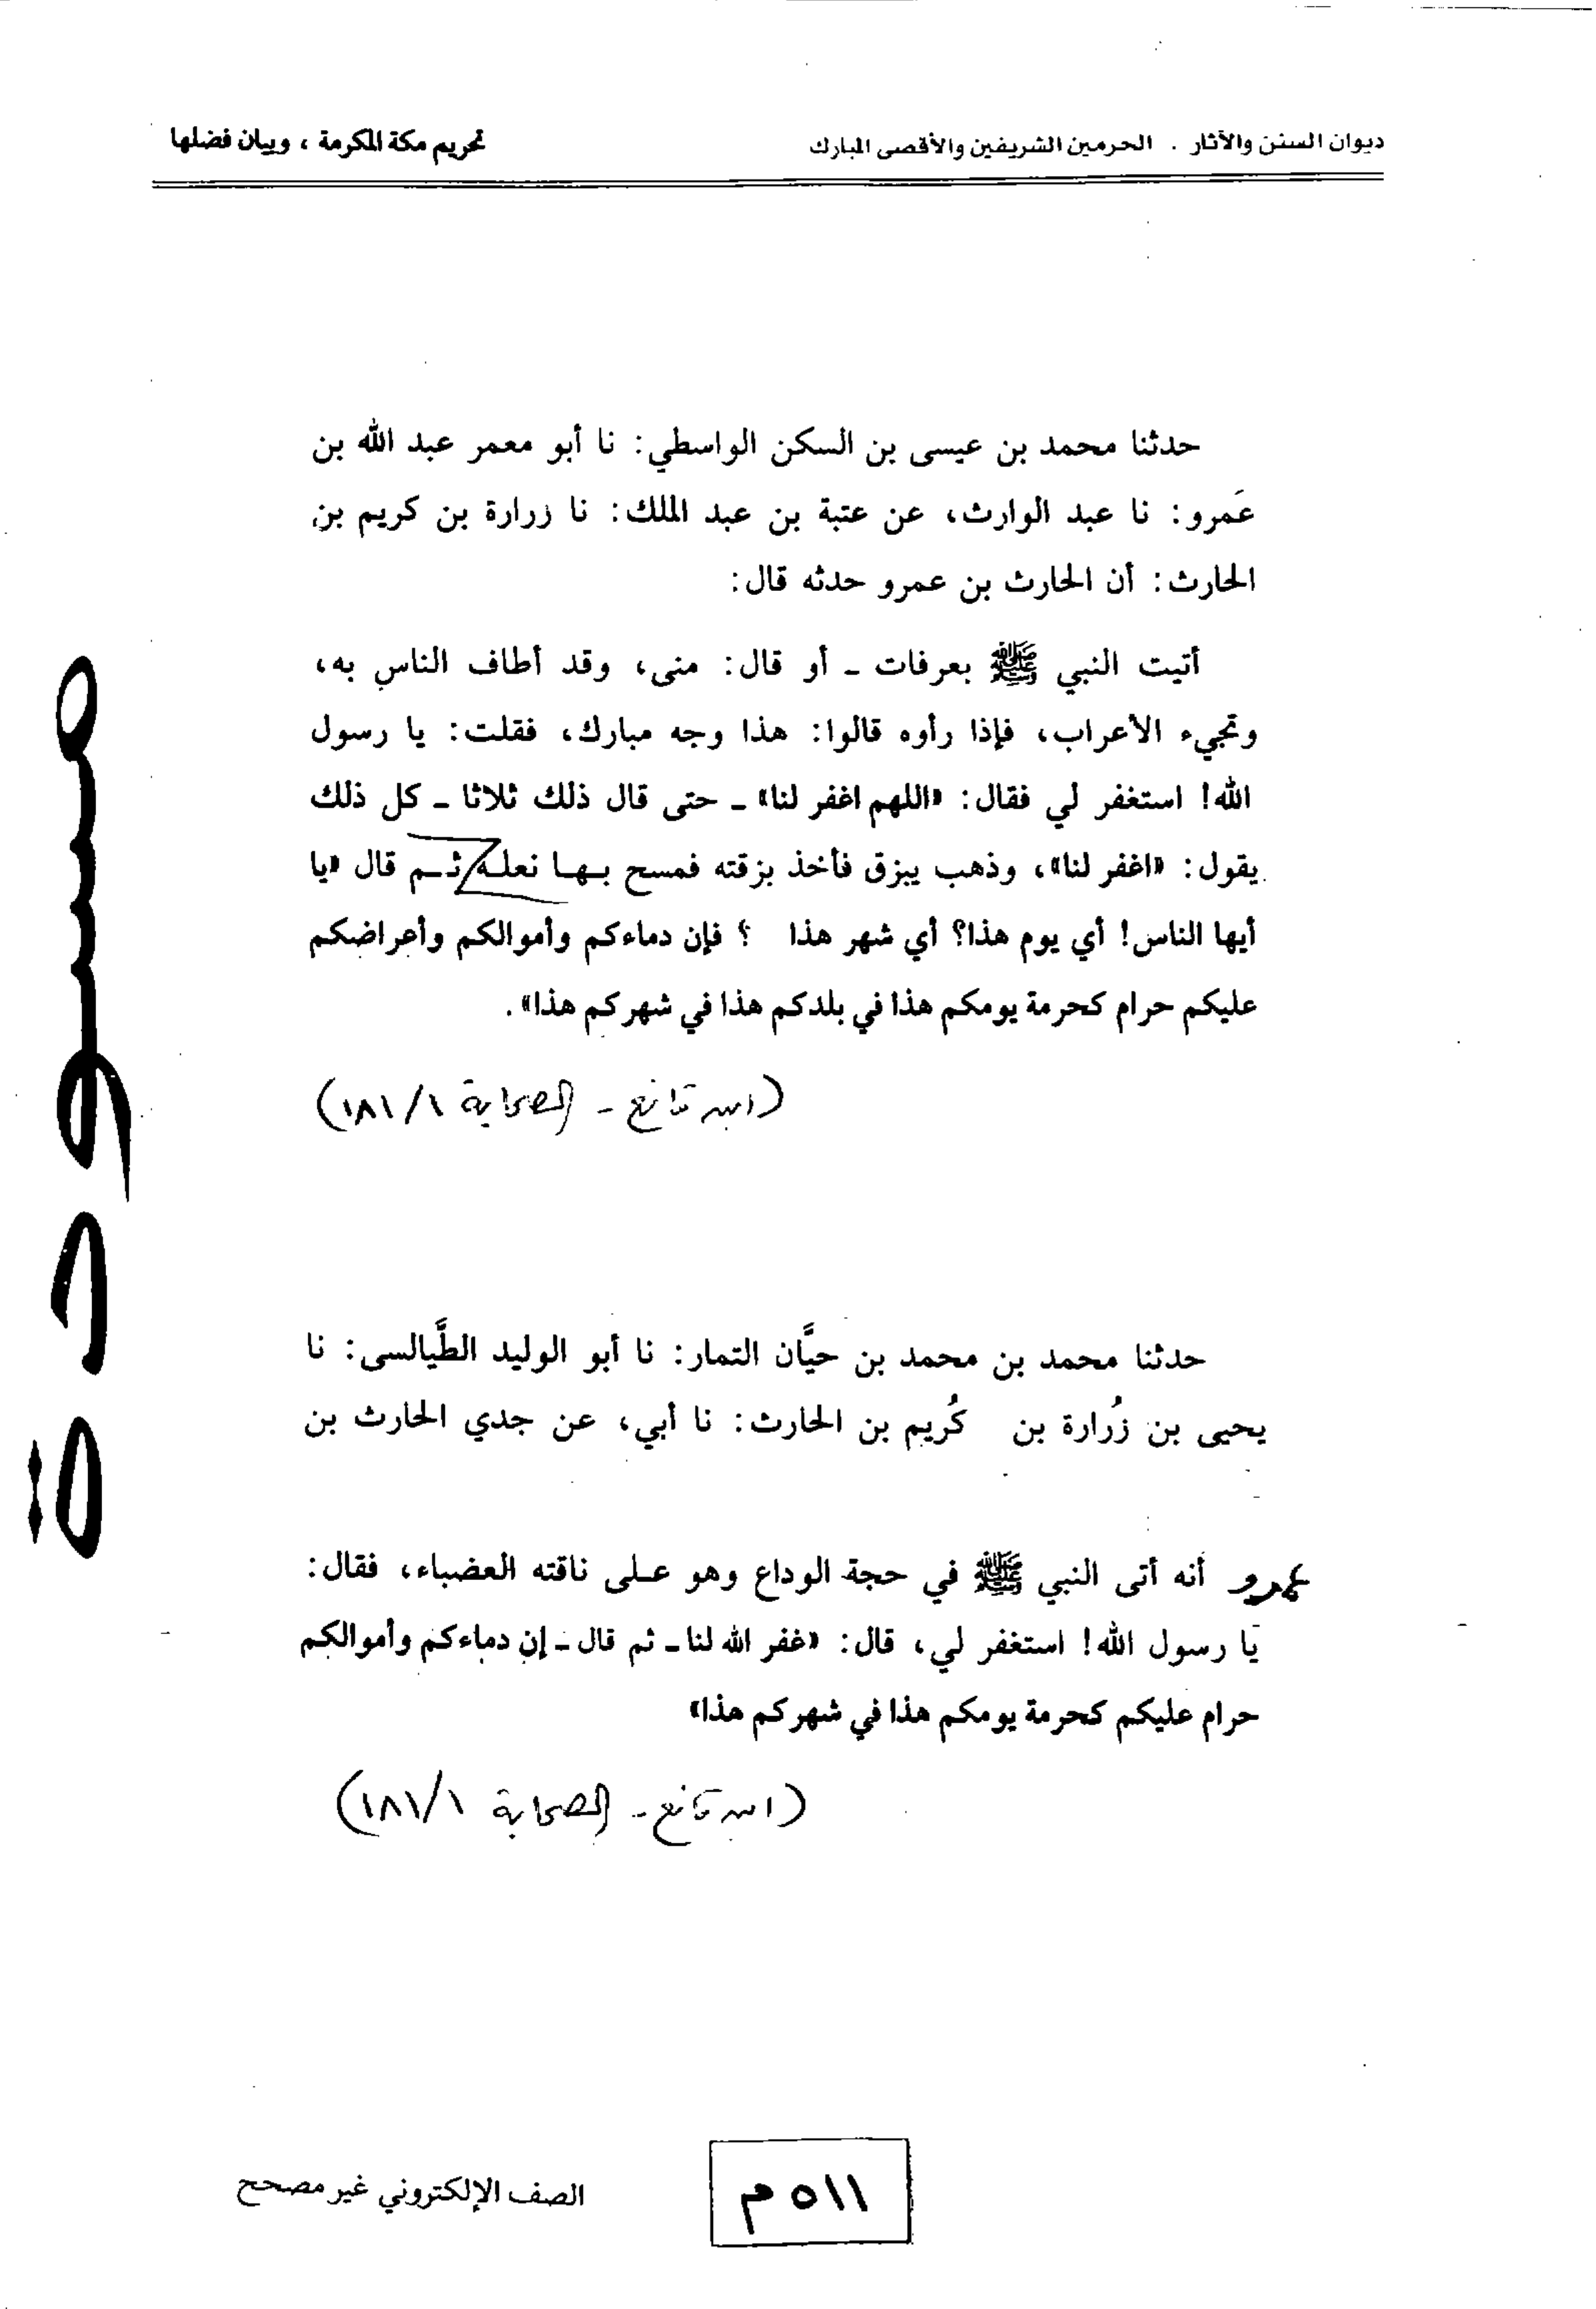 ديوان السنن والآثار . الحرمين الشريفين والأقصى المبارك
تحريم مكة المكرمة ، وبيان فضلها
حدثنا محمد بن عيسى بن السكن الواسطي: نا أبو معمر عبد الله بن
عَمرو: نا عبد الوارث، عن عتبة بن عبد الملك: نا زرارة بن كريم بن
الحارث: أن الحارث بن عمرو حدثه قال:
أتيت النبي ﷺ بعرفات - أو قال: منى، وقد أطاف الناس به،
وتجيء الأعراب، فإذا رأوه قالوا: هذا وجه مبارك، فقلت: يا رسول
الله! استغفر لي فقال: «اللهم اغفر لنا» - حتى قال ذلك ثلاثا - كل ذلك
يقول: «اغفر لنا»، وذهب يبزق فأخذ بزقته فمسح بها نعله ثم قال «يا
أيها الناس! أي يوم هذا؟ أي شهر هذا ؟ فإن دماءكم وأموالكم وأعراضكم
عليكم حرام كحرمة يومكم هذا في بلدكم هذا في شهركم هذا».
(ابن قانع - الصحابة ١/١٨١)
حدثنا محمد بن محمد بن حيَّان التمار: نا أبو الوليد الطَّيالسى: نا
يحيى بن زُرارة بن كُريم بن الحارث: نا أبي، عن جدي الحارث بن
عمرو أنه أتى النبي ﷺ في حجة الوداع وهو على ناقته العضباء، فقال:
يا رسول الله! استغفر لي، قال: «غفر الله لنا - ثم قال - إن دماءكم وأموالكم
حرام عليكم كحرمة يومكم هذا في شهركم هذا»
(ابن قانع - الصحابة ١/١٨١)
مسودة
٥١١ م
الصف الإلكتروني غير مصحح